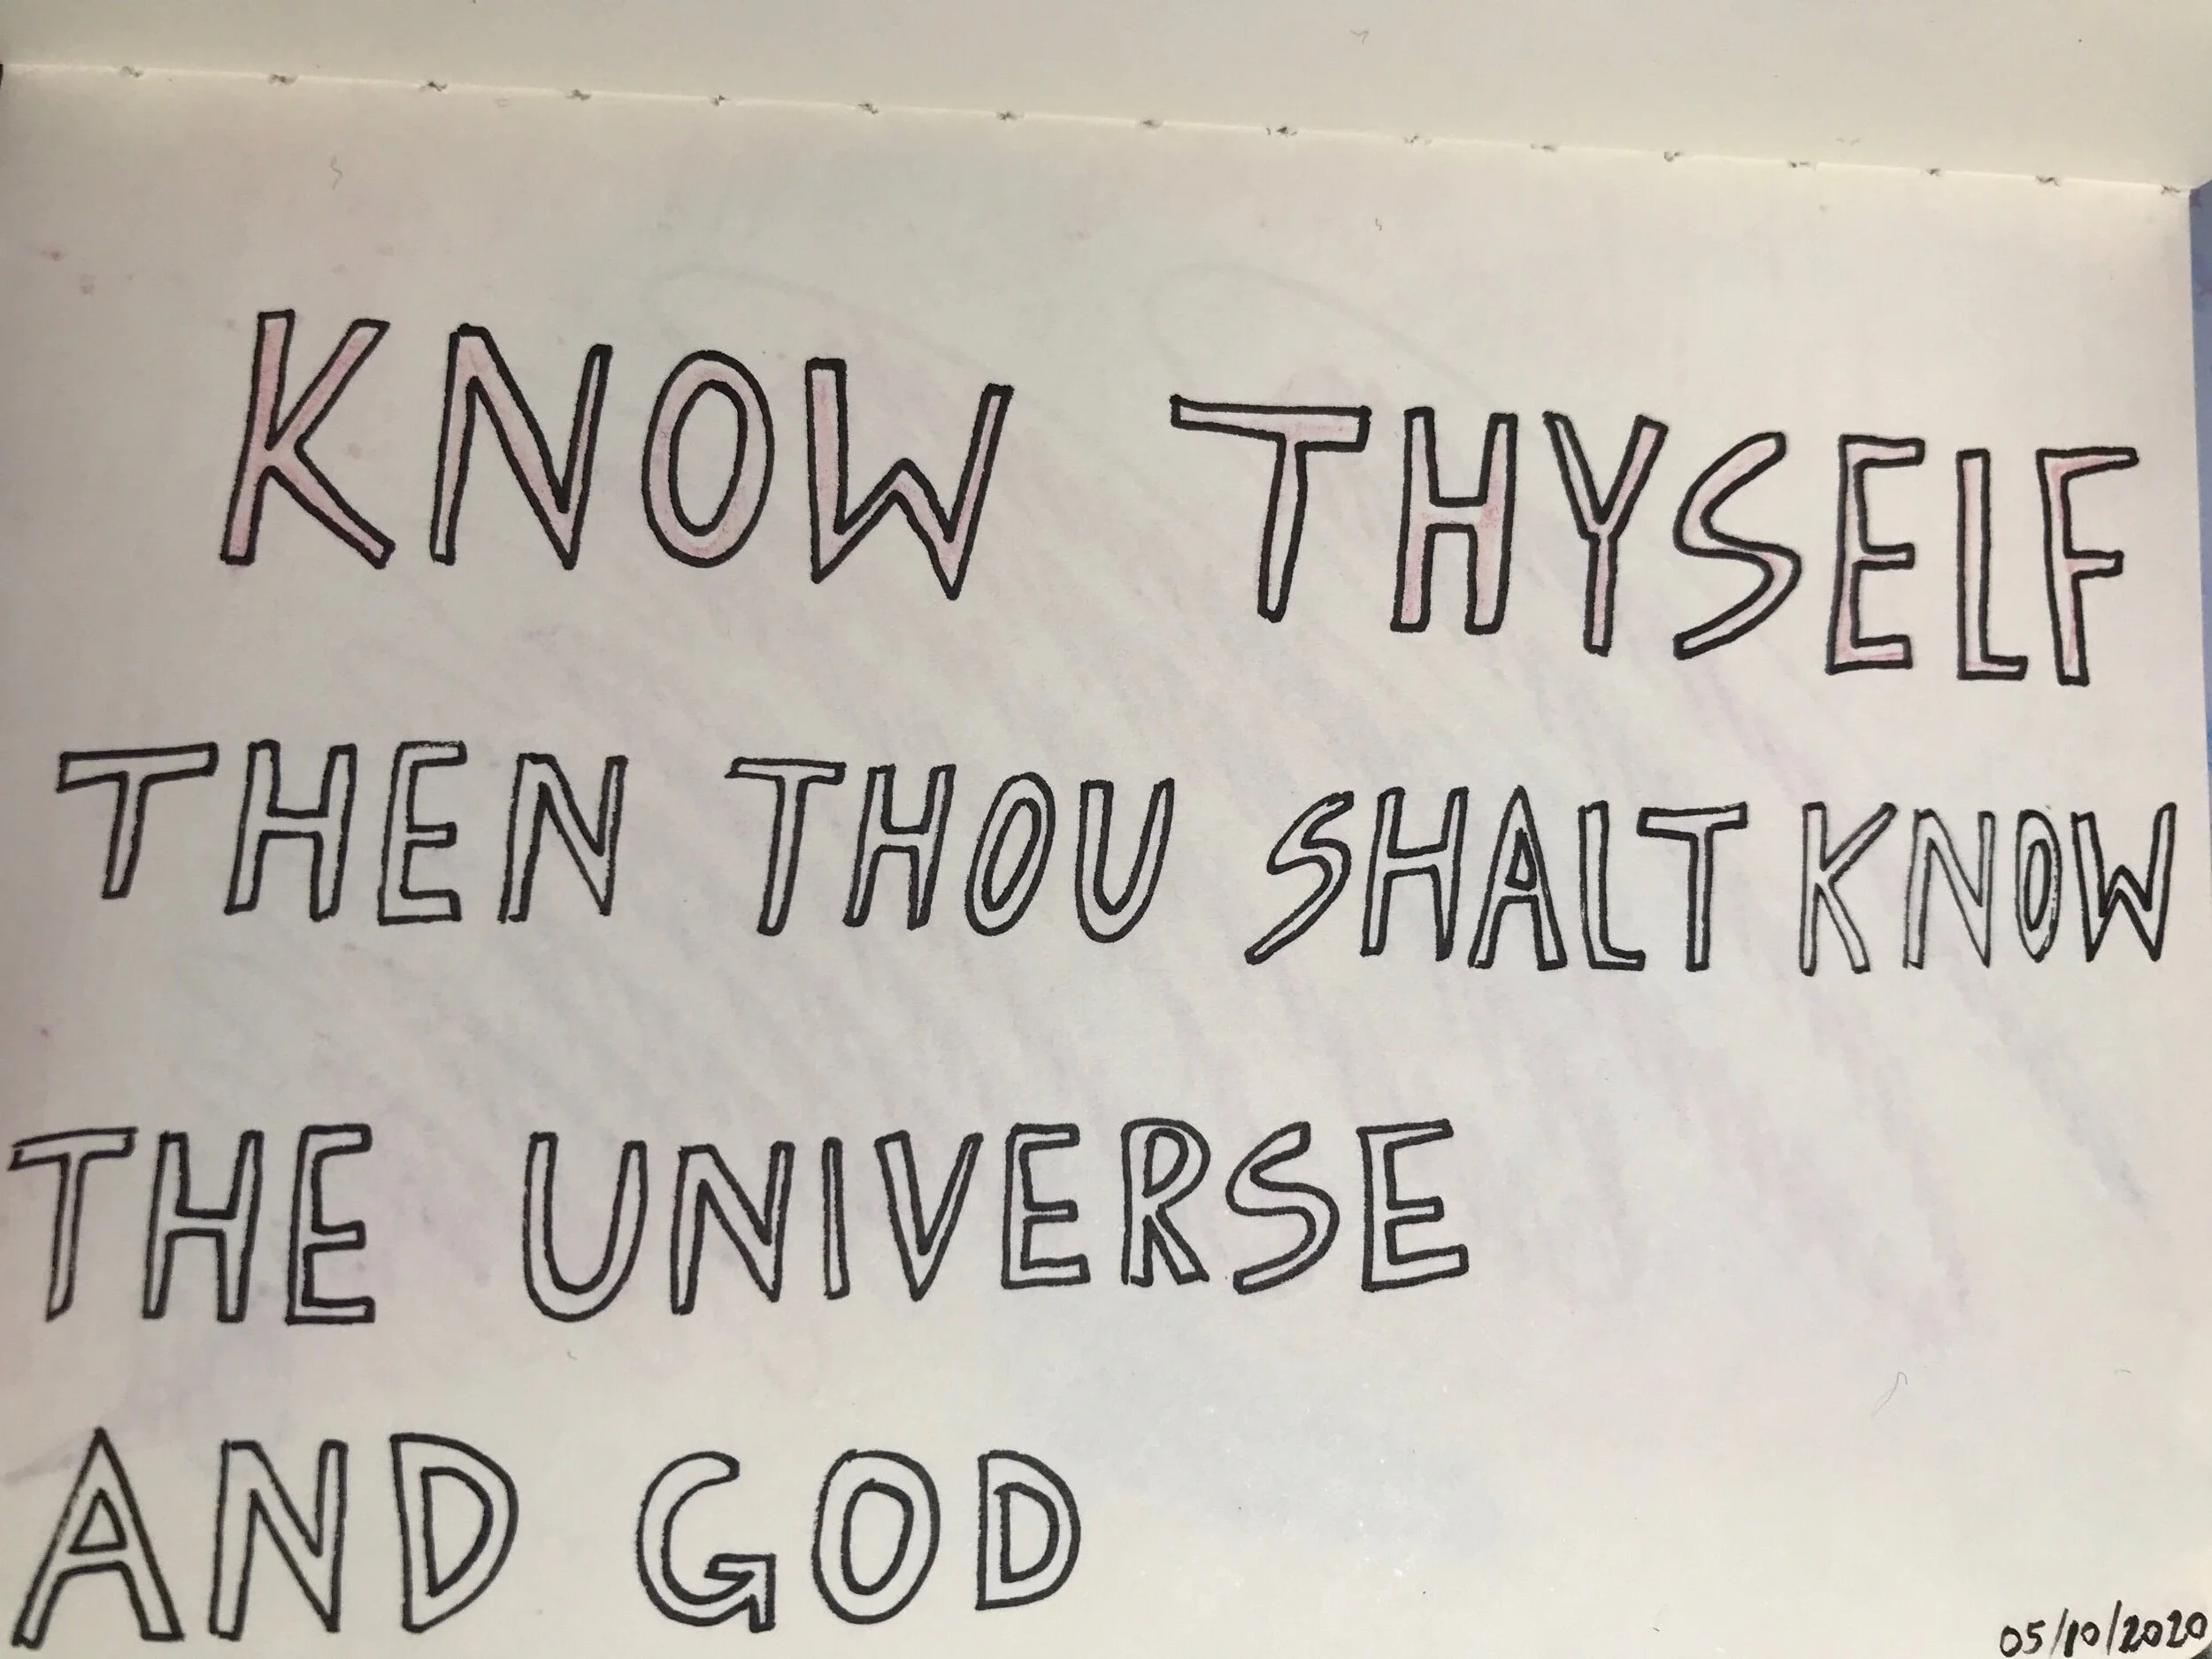 KNOW THYSELF
THEN THOU SHALT KNOW
THE UNIVERSE
AND GOD
05/10/2020